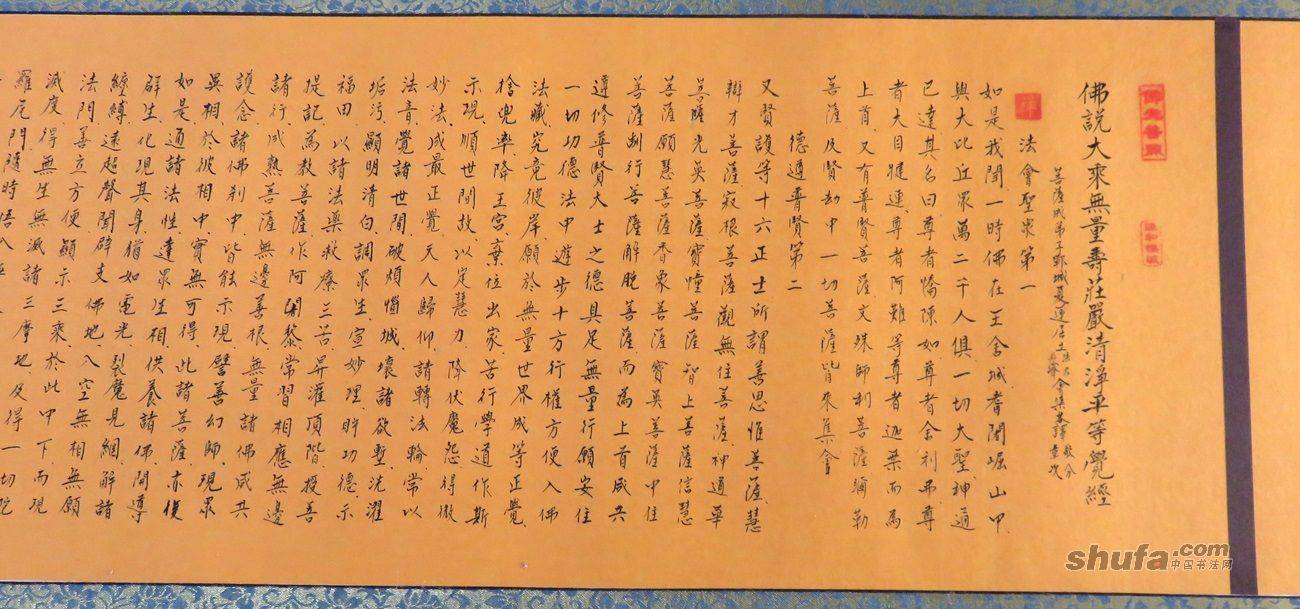 佛說大乘無量壽莊嚴清淨平等覺經
菩薩戒弟子鄆城夏蓮居 會集各譯 敬分章次
法會聖眾第一
如是我聞一時佛在王舍城耆闍崛山中
與大比丘眾萬二千人俱一切大聖神通
已達其名曰尊者憍陳如尊者舍利弗尊
者大目犍連尊者阿難等尊者迦葉而為
上首又有普賢菩薩文殊師利菩薩彌勒
菩薩及賢劫中一切菩薩皆來集會
德遵普賢第二
又賢護等十六正士所謂善思惟菩薩慧
辯才菩薩寂根菩薩觀無住菩薩神通華
菩薩光英菩薩寶幢菩薩智上菩薩信慧
菩薩願慧菩薩香象菩薩寶英菩薩中住
菩薩制行菩薩解脫菩薩而為上首咸共
遵修普賢大士之德具足無量行願安住
一切功德法中遊步十方行權方便入佛
法藏究竟彼岸願於無量世界成等正覺
捨兜率降王宮棄位出家苦行學道作斯
示現順世間故以定慧力降伏魔怨得微
妙法成最正覺天人歸仰請轉法輪常以
法音覺諸世間破煩惱城壞諸欲塹洗濯
垢污顯明清白調眾生宣妙理貯功德示
福田以諸法藥救療三苦昇灌頂階授菩
提記為教菩薩作阿闍黎常習相應無邊
諸行成熟菩薩無邊善根無量諸佛咸共
護念諸佛剎中皆能示現譬善幻師現眾
異相於彼相中實無可得此諸菩薩亦復
如是通諸法性達眾生相供養諸佛開導
群生化現其身猶如電光裂魔見網解諸
纏縛遠超聲聞辟支佛地入空無相無願
法門善立方便顯示三乘於此中下而現
滅度得無生無滅諸三摩地及得一切陀
羅尼門隨時悟入
shufa.com
中国书法网